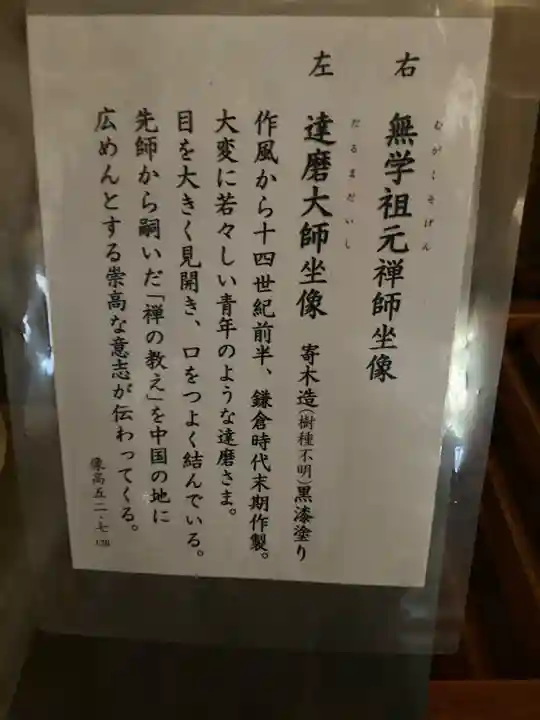 右　無学祖元禅師坐像
むがくそげん
左　達磨大師坐像　寄木造(樹種不明)黒漆塗り
だるまだいし
作風から十四世紀前半、鎌倉時代末期作製。
大変に若々しい青年のような達磨さま。
目を大きく見開き、口をつよく結んでいる。
先師から嗣いだ「禅の教え」を中国の地に
広めんとする崇高な意志が伝わってくる。
像高五二・七㎝